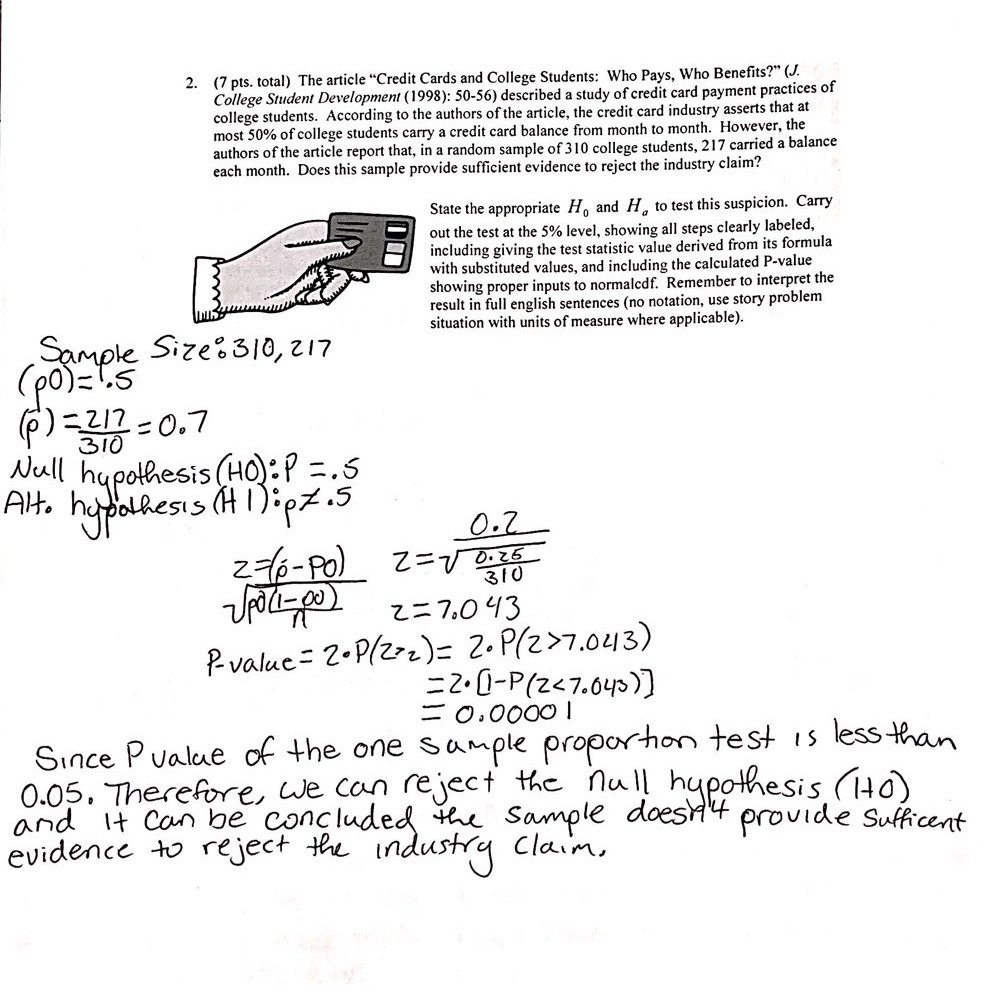 2. (7 pts. total) The article “Credit Cards and College Students: Who Pays, Who Benefits?” (J.
College Student Development (1998): 50-56) described a study of credit card payment practices of
college students. According to the authors of the article, the credit card industry asserts that at
most 50% of college students carry a credit card balance from month to month. However, the
authors of the article report that, in a random sample of 310 college students, 217 carried a balance
each month. Does this sample provide sufficient evidence to reject the industry claim?
State the appropriate H₀ and Hₐ to test this suspicion. Carry
out the test at the 5% level, showing all steps clearly labeled,
including giving the test statistic value derived from its formula
with substituted values, and including the calculated P-value
showing proper inputs to normalcdf. Remember to interpret the
result in full english sentences (no notation, use story problem
situation with units of measure where applicable).
Sample Size: 310, 217
(p0)= .5
(p̂) = 217/310 = 0.7
Null hypothesis (H0): P = .5
Alt. hypothesis (H1): p≠.5
z=(p̂-p0)/√(p0(1-p0)/n)
z=0.2/√(0.25/310)
z=7.043
P-value = 2•P(z>z)= 2•P(z>7.043)
=2•[1-P(z<7.043)]
= 0.00001
Since P value of the one sample proportion test is less than
0.05. Therefore, we can reject the null hypothesis (H0)
and it can be concluded the sample doesn't provide sufficent
evidence to reject the industry claim.